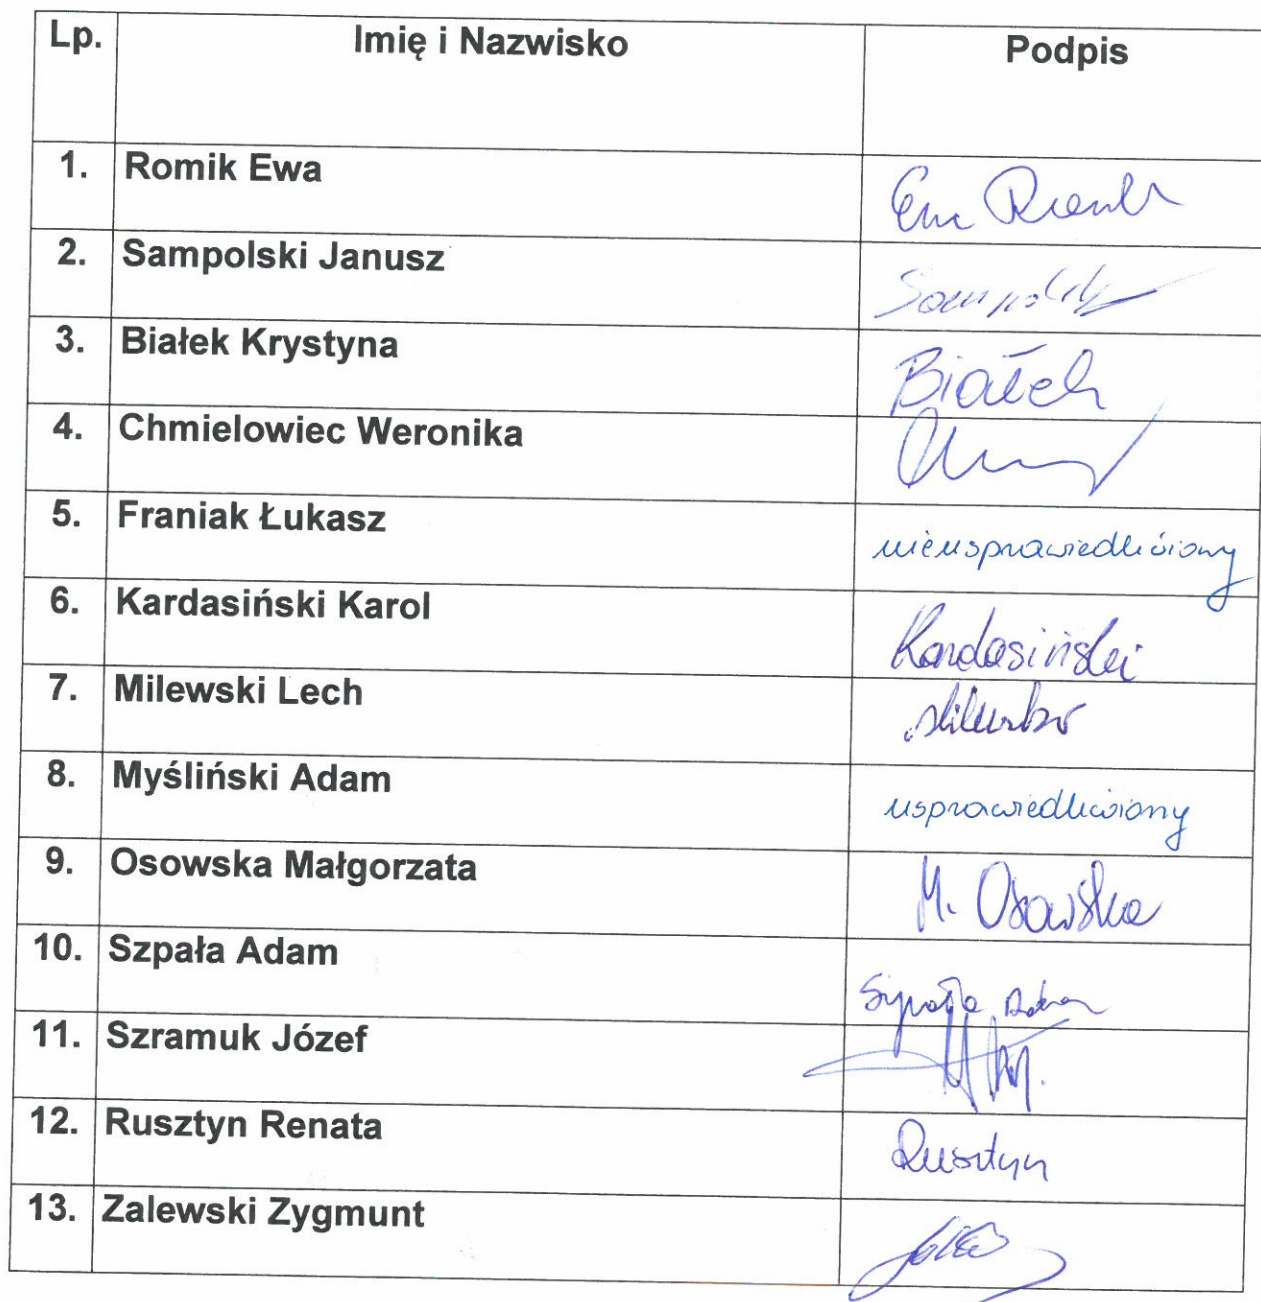 Lp. Imię i Nazwisko Podpis
1. Romik Ewa Ewa Romik
2. Sampolski Janusz Sampolski
3. Białek Krystyna Białek
4. Chmielowiec Weronika
5. Franiak Łukasz nieusprawiedliwiony
6. Kardasiński Karol Kardasiński
7. Milewski Lech Milewski
8. Myśliński Adam usprawiedliwiony
9. Osowska Małgorzata M. Osowska
10. Szpała Adam Szpała Adam
11. Szramuk Józef
12. Rusztyn Renata Rusztyn
13. Zalewski Zygmunt